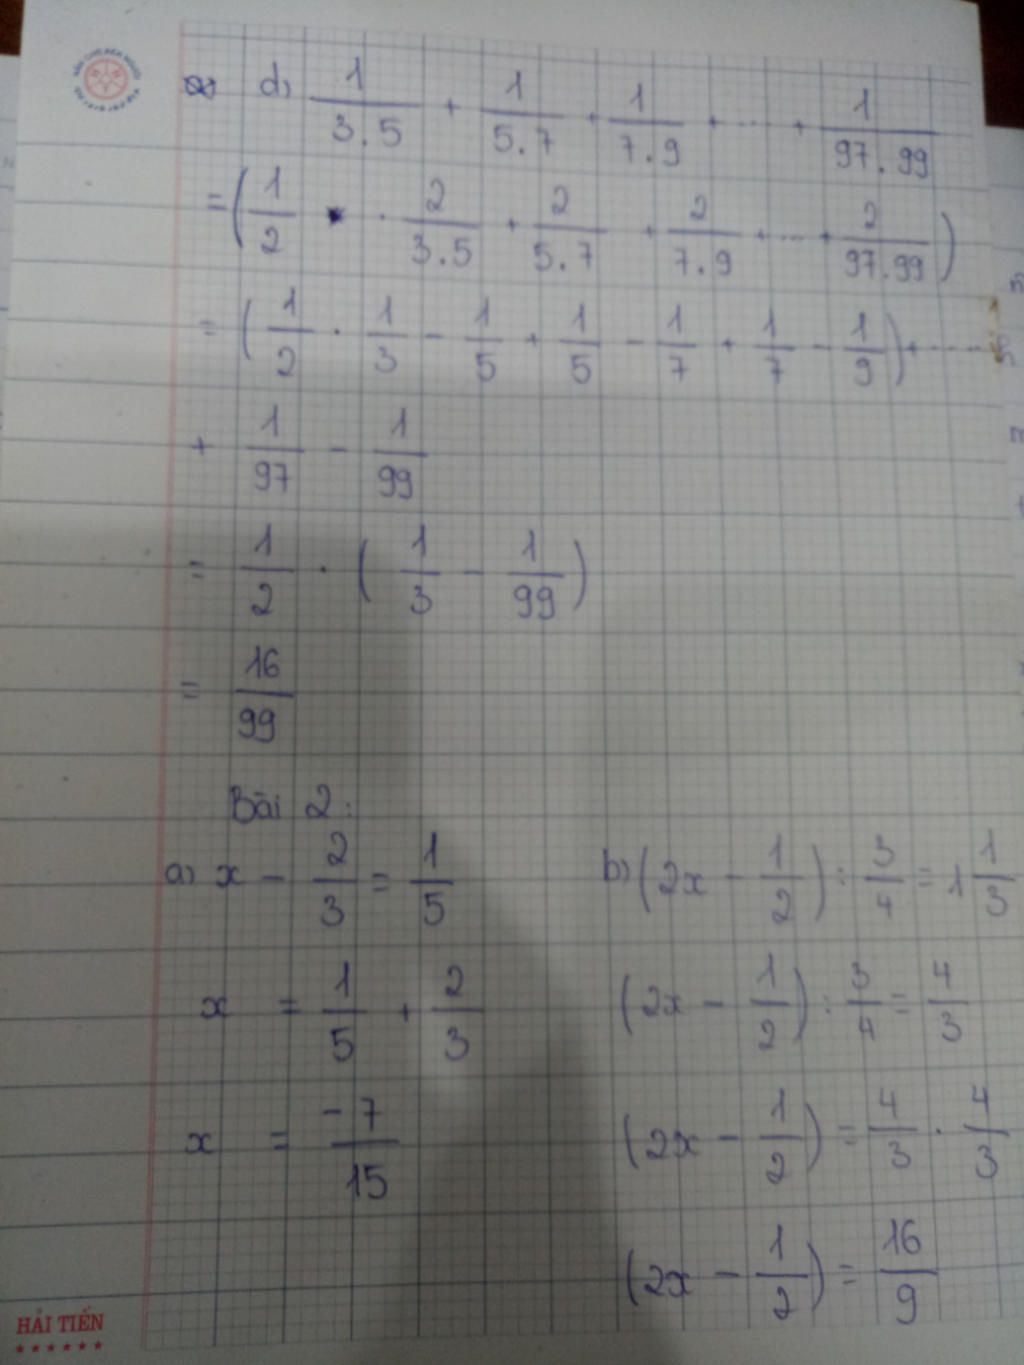 d) 1/3.5 + 1/5.7 + 1/7.9 + ... + 1/97.99
= (1/2 . 2/3.5 + 2/5.7 + 2/7.9 + ... + 2/97.99)
= (1/2 . 1/3 - 1/5 + 1/5 - 1/7 + 1/7 - 1/9) + ...
+ 1/97 - 1/99
= 1/2 . (1/3 - 1/99)
= 16/99
Bài 2:
a) x - 2/3 = 1/5
x = 1/5 + 2/3
x = -7/15
b) (2x - 1/2) : 3/4 = 1 1/3
(2x - 1/2) : 3/4 = 4/3
(2x - 1/2) = 4/3 . 4/3
(2x - 1/2) = 16/9
HẢI TIẾN